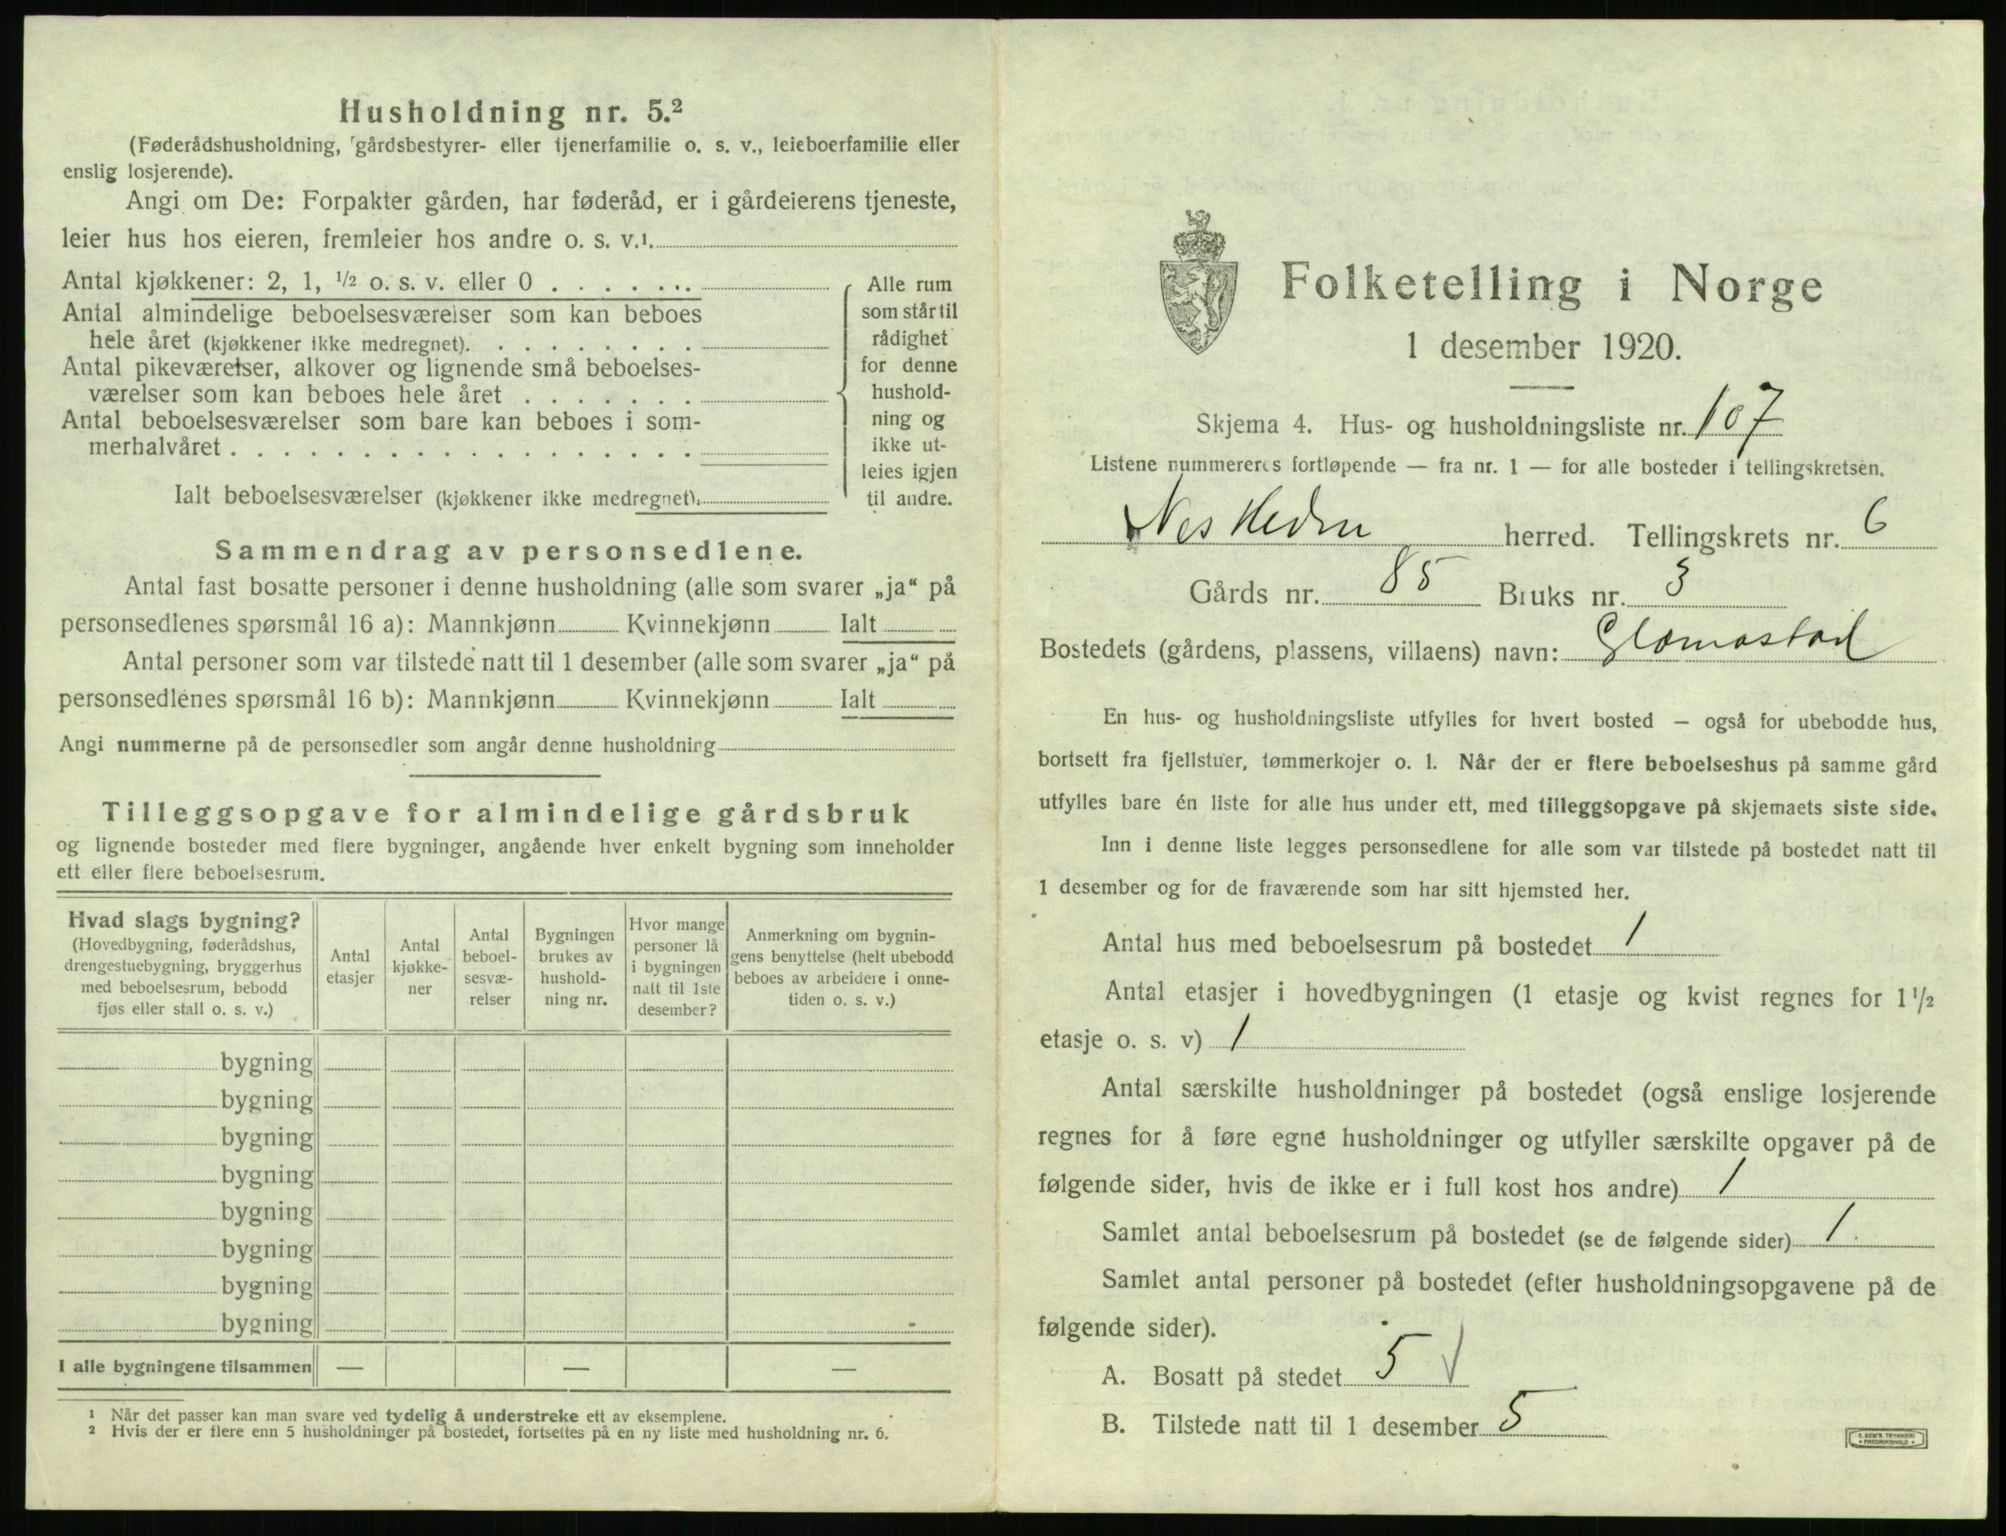 Husholdning nr. 5.²
(Føderådshusholdning, gårdsbestyrer- eller tjenerfamilie o. s. v., leieboerfamilie eller
enslig losjerende).
Angi om De: Forpakter gården, har føderåd, er i gårdeierens tjeneste,
leier hus hos eieren, fremleier hos andre o. s. v.¹
Antal kjøkkener: 2, 1, ½ o. s. v. eller 0 . . . . . . .
Antal almindelige beboelsesværelser som kan beboes
hele året (kjøkkener ikke medregnet). . . . . . . . .
Antal pikeværelser, alkover og lignende små beboelses-
værelser som kan beboes hele året . . . . . . .
Antal beboelsesværelser som bare kan beboes i som-
merhalvåret . . . . . . . . . . . . . . . . . .
Ialt beboelsesværelser (kjøkkener ikke medregnet).
Alle rum
som står til
rådighet
for denne
hushold-
ning og
ikke ut-
leies igjen
til andre.
Sammendrag av personsedlene.
Antal fast bosatte personer i denne husholdning (alle som svarer „ja“ på
personsedlenes spørsmål 16 a): Mannkjønn Kvinnekjønn Ialt
Antal personer som var tilstede natt til 1 desember (alle som svarer „ja“ på
personsedlenes spørsmål 16 b): Mannkjønn Kvinnekjønn Ialt
Angi nummerne på de personsedler som angår denne husholdning
Tilleggsopgave for almindelige gårdsbruk
og lignende bosteder med flere bygninger, angående hver enkelt bygning som inneholder
ett eller flere beboelsesrum.
Hvad slags bygning?
(Hovedbygning, føderådshus,
drengestuebygning, bryggerhus
med beboelsesrum, bebodd
fjøs eller stall o. s. v.)
Antal
etasjer
Antal
kjøkke-
ner
Antal
beboel-
sesvæ-
relser
Bygningen
brukes av
hushold-
ning nr.
Hvor mange
personer lå
i bygningen
natt til 1ste
desember?
Anmerkning om bygnin-
gens benyttelse (helt ubebodd
beboes av arbeidere i onne-
tiden o. s. v.)
bygning
bygning
bygning
bygning
bygning
bygning
bygning
bygning
I alle bygningene tilsammen — — —
¹ Når det passer kan man svare ved tydelig å understreke ett av eksemplene.
² Hvis der er flere enn 5 husholdninger på bostedet, fortsettes på en ny liste med husholdning nr. 6.
Folketelling i Norge
1 desember 1920.
Skjema 4. Hus- og husholdningsliste nr. 107
Listene nummereres fortløpende — fra nr. 1 — for alle bosteder i tellingskretsen.
Nes Hedm herred. Tellingskrets nr. 6
Gårds nr. 85 Bruks nr. 3
Bostedets (gårdens, plassens, villaens) navn: Glomostad
En hus- og husholdningsliste utfylles for hvert bosted — også for ubebodde hus,
bortsett fra fjellstuer, tømmerkojer o. l. Når der er flere beboelseshus på samme gård
utfylles bare én liste for alle hus under ett, med tilleggsopgave på skjemaets siste side.
Inn i denne liste legges personsedlene for alle som var tilstede på bostedet natt til
1 desember og for de fraværende som har sitt hjemsted her.
Antal hus med beboelsesrum på bostedet 1
Antal etasjer i hovedbygningen (1 etasje og kvist regnes for 1½
etasje o. s. v) 1
Antal særskilte husholdninger på bostedet (også enslige losjerende
regnes for å føre egne husholdninger og utfyller særskilte opgaver på de
følgende sider, hvis de ikke er i full kost hos andre) 1
Samlet antal beboelsesrum på bostedet (se de følgende sider) 1.
Samlet antal personer på bostedet (efter husholdningsopgavene på de
følgende sider).
A. Bosatt på stedet 5 √
B. Tilstede natt til 1 desember 5